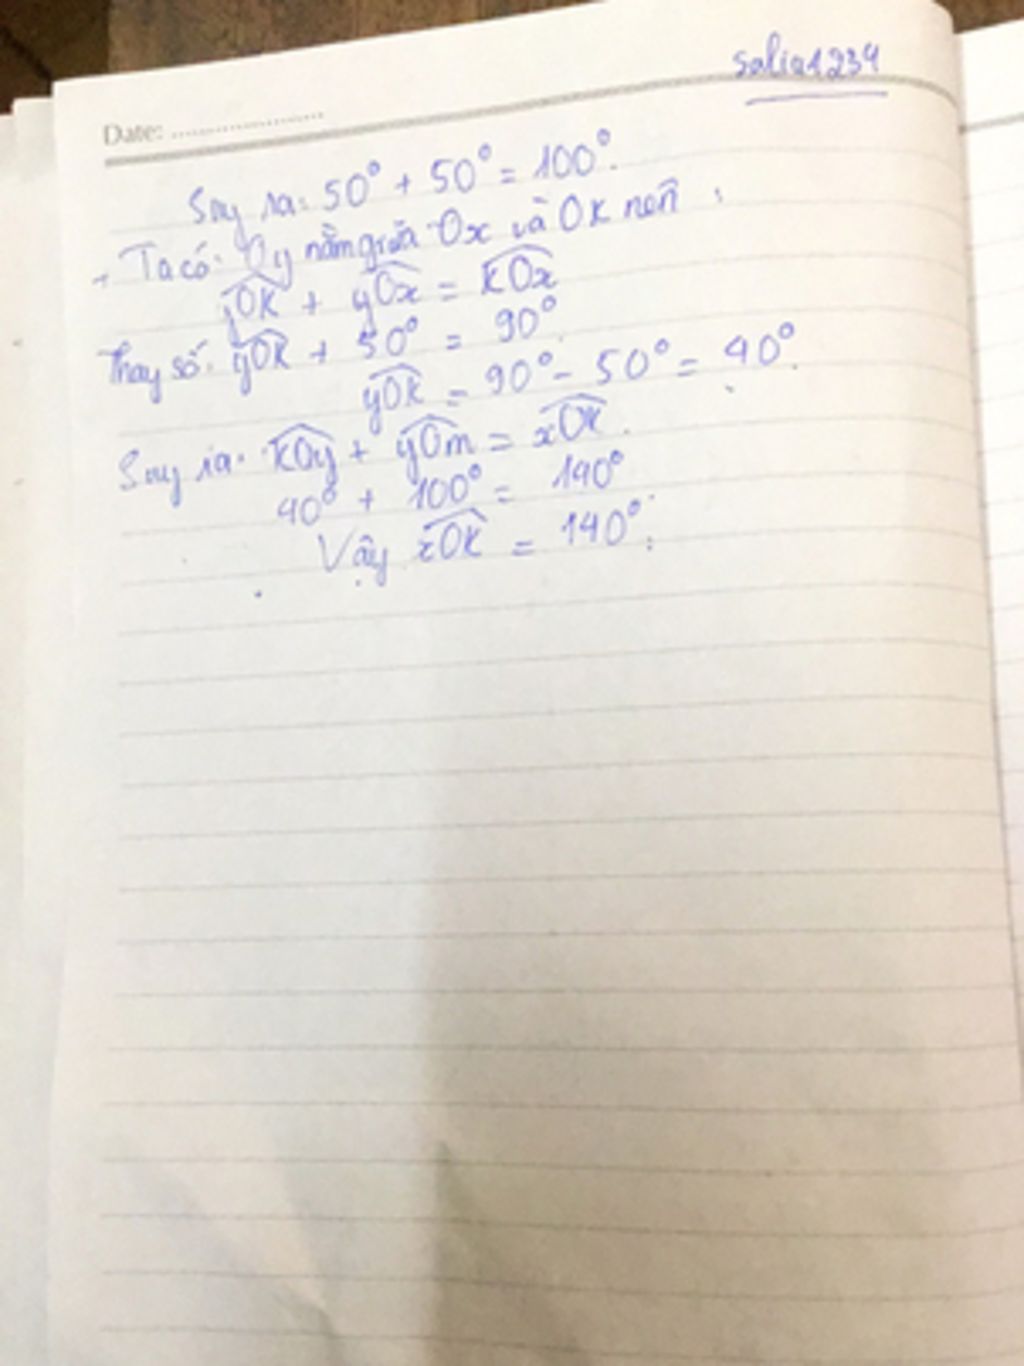 salia1234
Date: ....................
Suy ra: 50° + 50° = 100°.
+ Ta có: Oy nằm giữa Ox và OK nên:
yOK + yOx = kOx
Thay số: yOK + 50° = 90°.
yOK = 90° - 50° = 40°.
Suy ra: kOy + yOm = xOK.
40° + 100° = 140°
Vậy xOK = 140°.